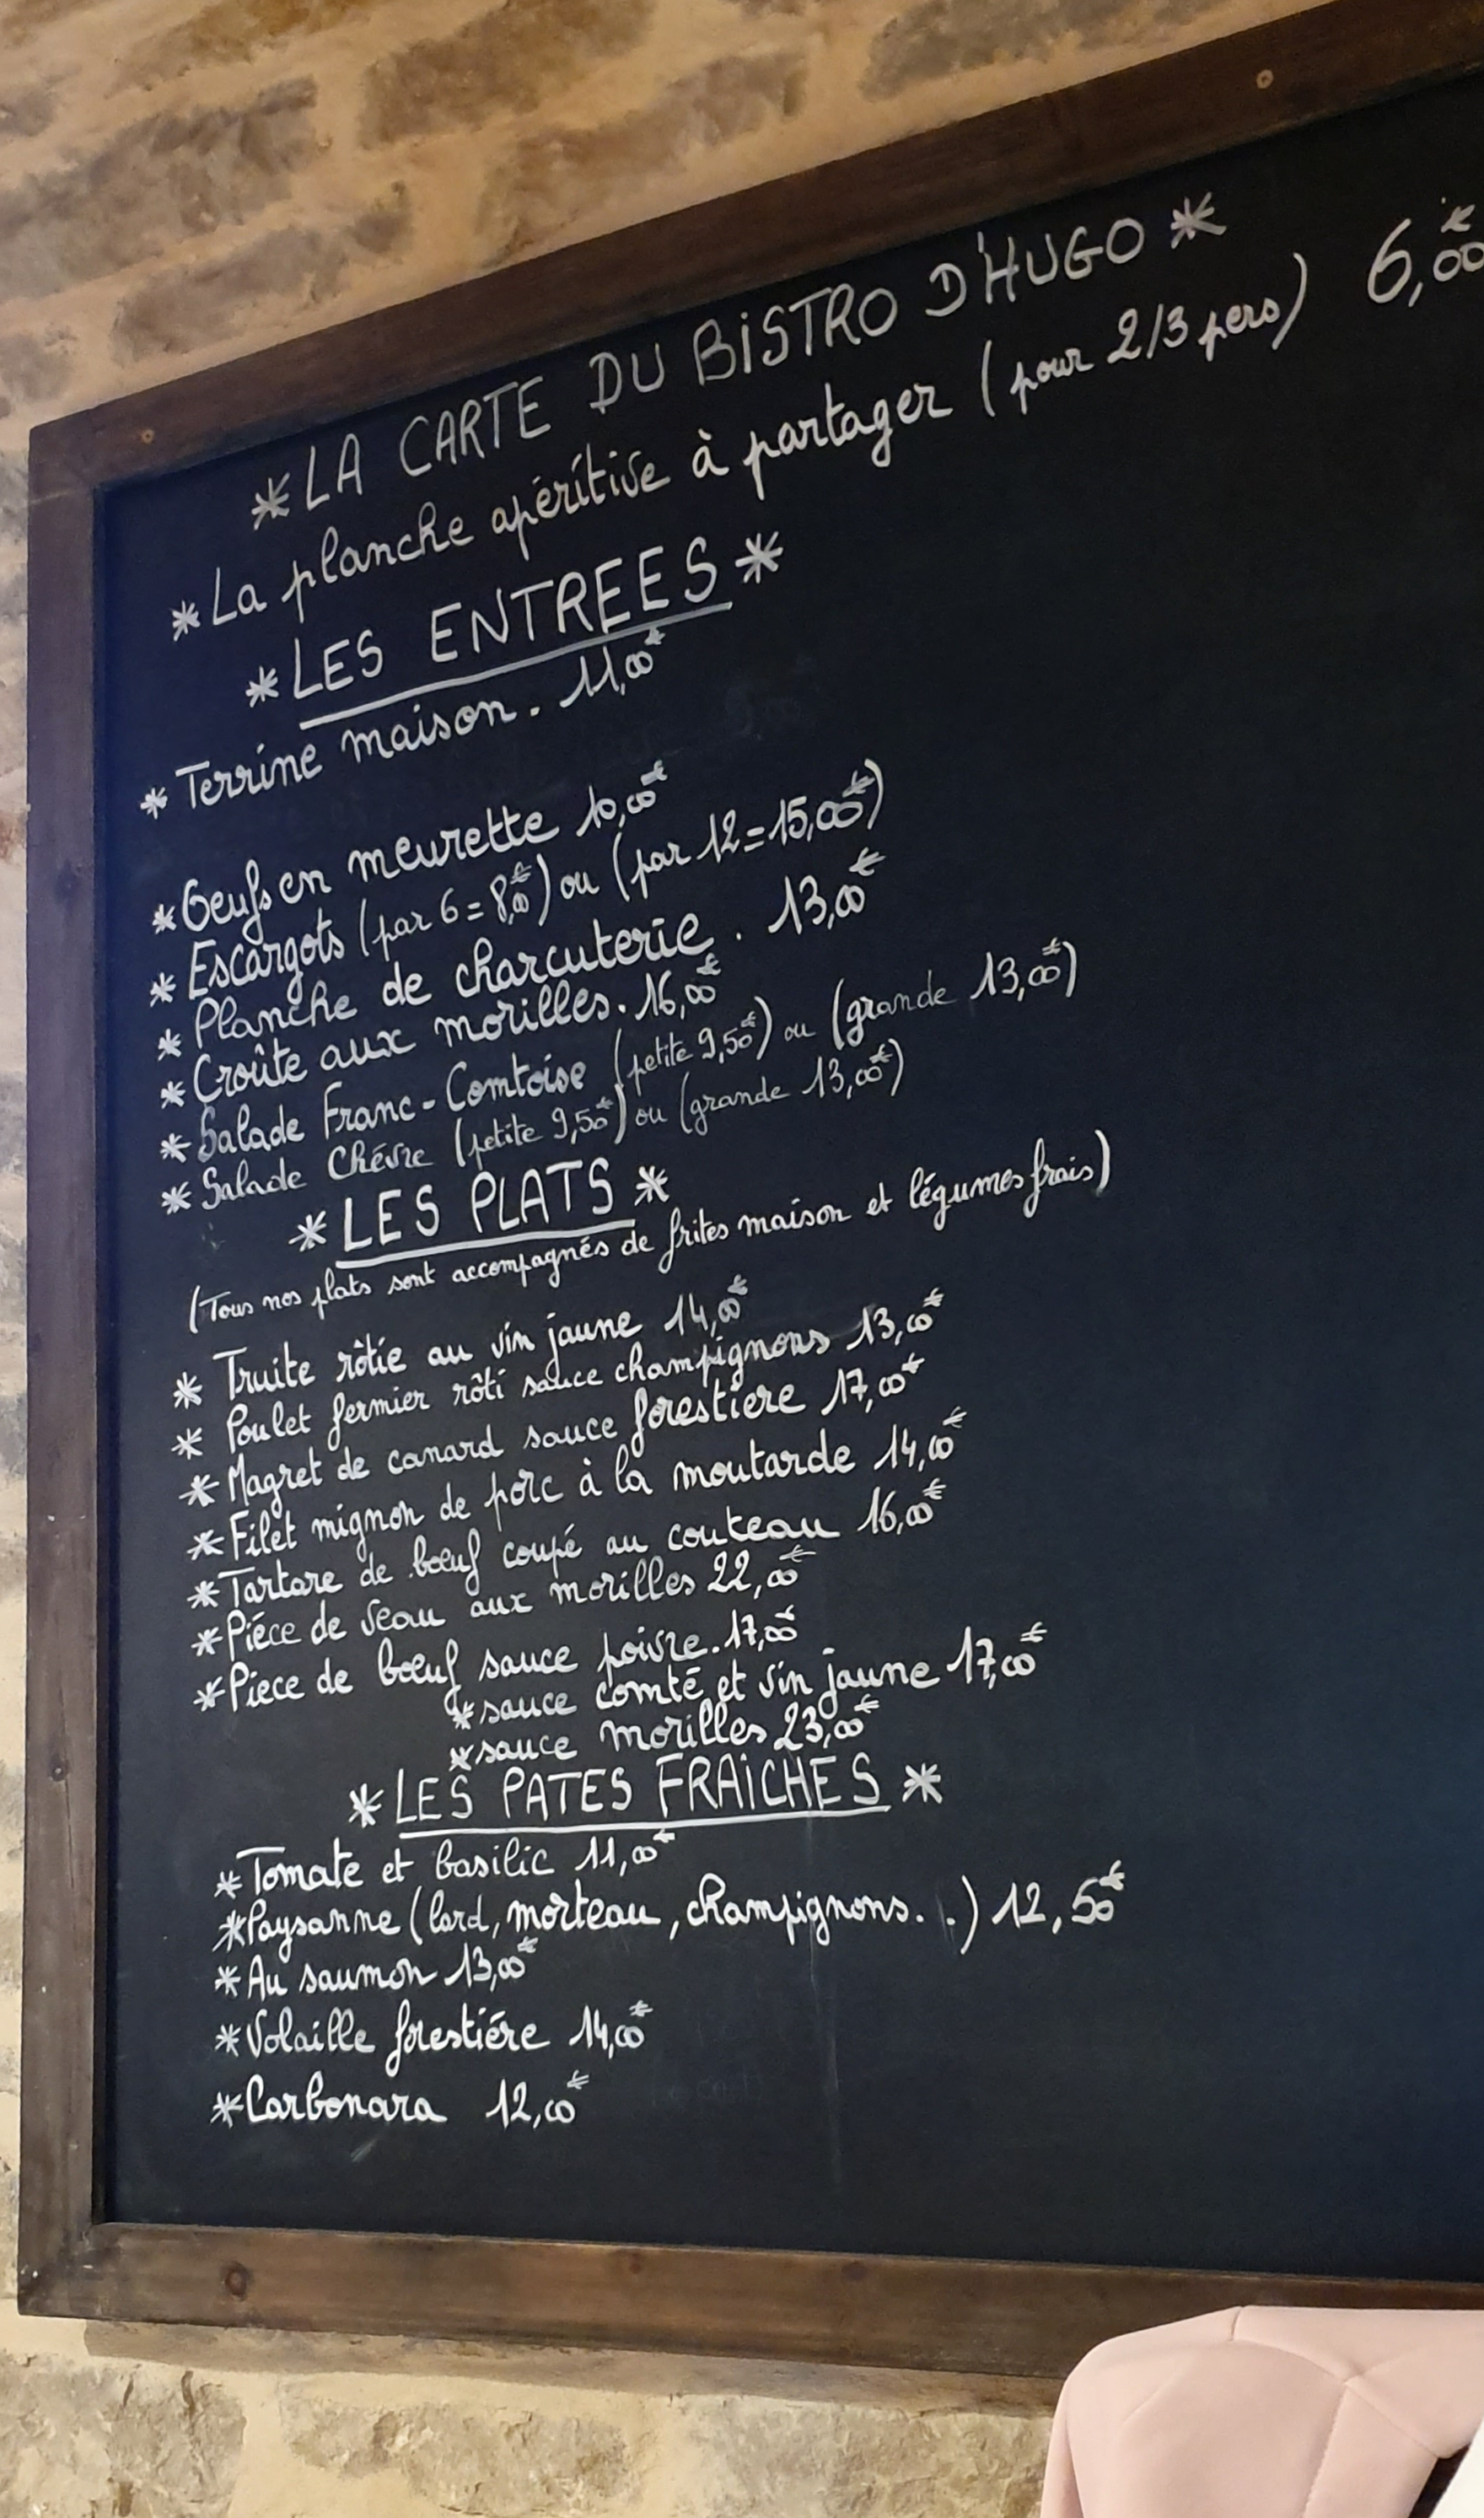 *LA CARTE DU BISTRO D'HUGO*
*La planche apéritive à partager (pour 2/3 pers) 6,00€
*LES ENTREES*
*Terrine maison. 11,00€
*Oeufs en meurette 10,00€
*Escargots (par 6=8,00€) ou (par 12=15,00€)
*Planche de charcuterie. 13,00€
*Croûte aux morilles. 16,00€
*Salade Franc-Comtoise (petite 9,50€) ou (grande 13,00€)
*Salade Chévre (petite 9,50€) ou (grande 13,00€)
*LES PLATS*
(Tous nos plats sont accompagnés de frites maison et légumes frais)
* Truite rôtie au vin jaune 14,00€
* Poulet fermier rôti sauce champignons 13,00€
*Magret de canard sauce forestiere 17,00€
*Filet mignon de porc à la moutarde 14,00€
*Tartare de boeuf coupé au couteau 16,00€
*Piéce de veau aux morilles 22,00€
*Piece de boeuf sauce poivre. 17,00€
*sauce comté et vin jaune 17,00€
*sauce morilles 23,00€
*LES PATES FRAICHES*
*Tomate et basilic 11,00€
*Paysanne (lard, morteau, champignons. .) 12,50€
*Au saumon 13,00€
*Volaille forestiére 14,00€
*Carbonara 12,00€